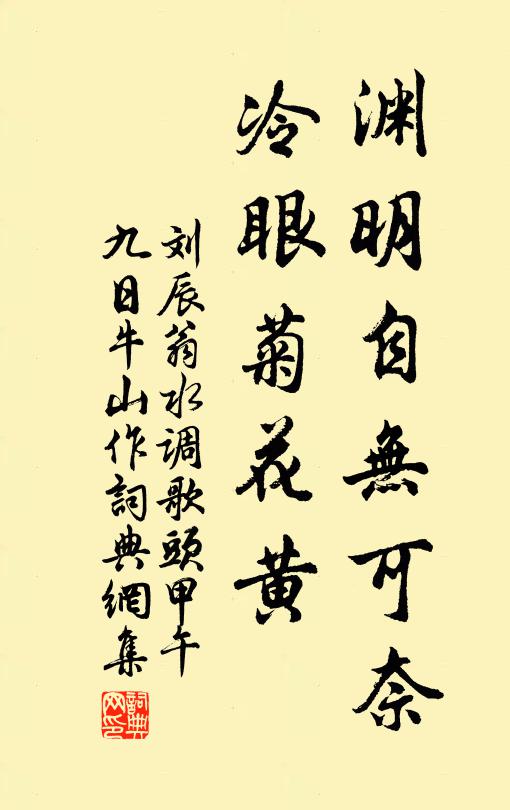 渊明自無可奈
冷眼菊花黄
刘辰翁水调歌頭甲午
九日牛山作詞典網集
詞典網印